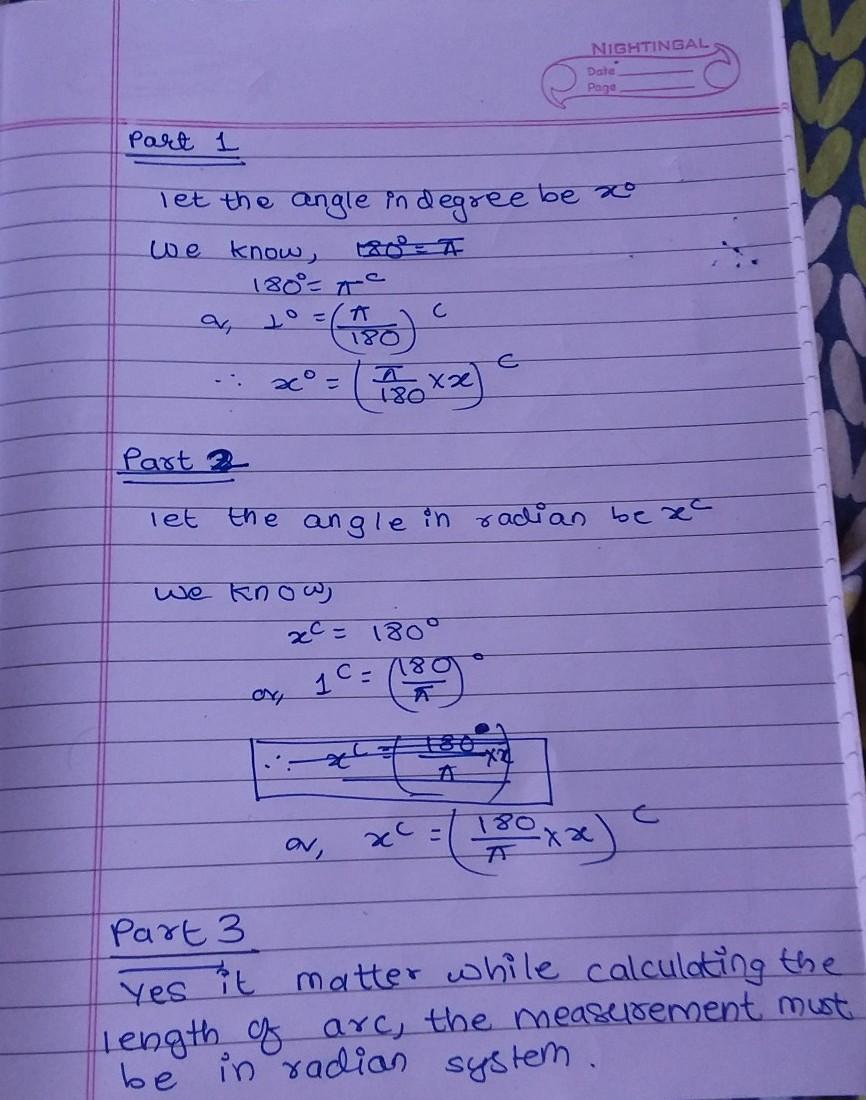 NIGHTINGAL
Date
Page
Part 1
let the angle in degree be x°
We know, 180° = π
180° = π^c
or, 1° = (π/180)^c
∴ x° = (π/180 × x)^c
Part 2
let the angle in radian be x^c
We know,
x^c = 180°
or, 1^c = (180/π)°
∴ x^c = (180°/π × x)
or, x^c = (180/π × x)^c
Part 3
Yes it matter while calculating the
length of arc, the measurement must
be in radian system.